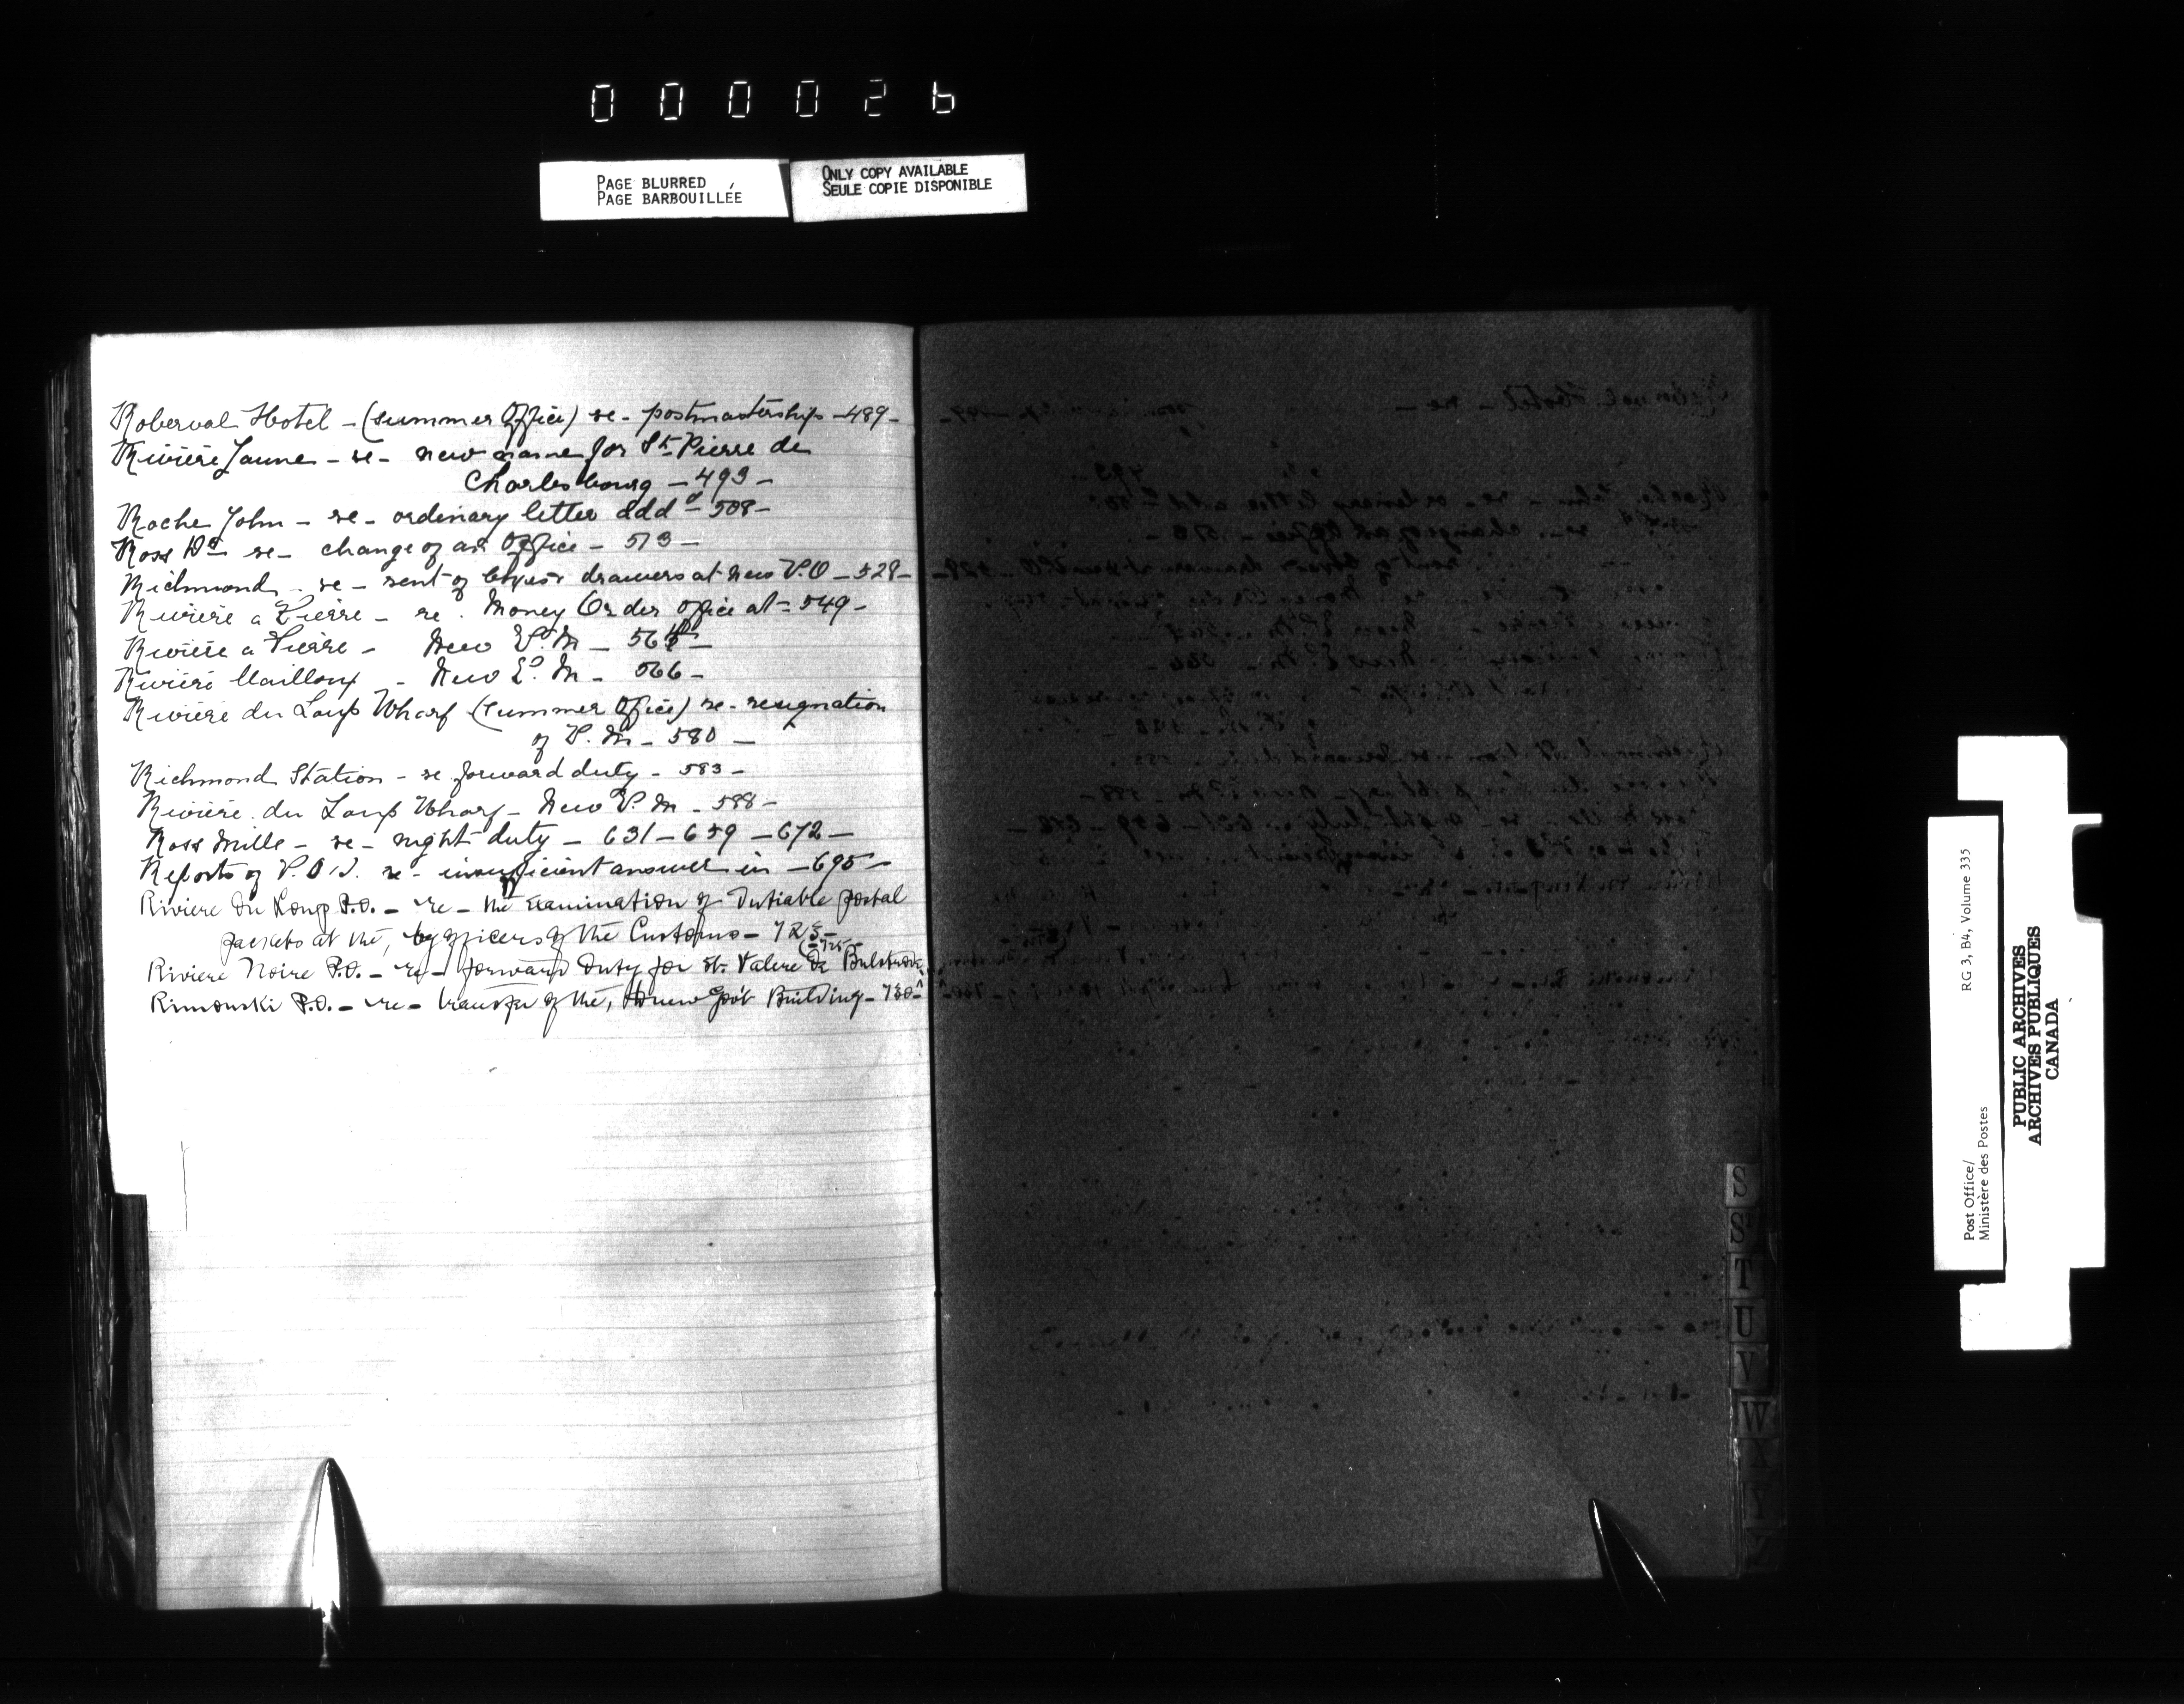 000026
PAGE BLURRED
PAGE BARBOUILLÉE
ONLY COPY AVAILABLE
SEULE COPIE DISPONIBLE
Roberval Hotel - (summer Office) re - postmastership - 489 -
Rivière Jaune - re - new name for St. Pierre de
Charlesbourg - 493 -
Roche John - re - ordinary letter add'd - 508 -
Ross Do re - change of an Office - 513 -
Richmond - re - rent of boxes drawers at new P.O - 528 -
Rivière a Pierre - re . Money Order office at - 549 -
Rivière a Pierre - New P.M - 564 -
Rivière Mailloux - New P.M - 566 -
Rivière du Loup Wharf (summer Office) re - resignation
of P.M - 580 -
Richmond Station - re forward duty - 583 -
Rivière du Loup Wharf - New P.M - 588 -
Ross Mills - re - night duty - 631 - 659 - 672 -
Reports of P.O.I. re - insufficient answer in - 695 -
Riviere du Loup P.O. - re - the examination of dutiable postal
packets at the, by officers of the Customs - 725 -
- 725 -
Riviere Noire P.O. - re - forward duty for St. Valere de Bulstrode
Rimouski P.O. - re - transfer of the, to new Gov't Building - 730 -
S
S
T
U
V
W
X
Y
Z
Post Office/
Ministère des Postes
RG 3, B4, Volume 335
PUBLIC ARCHIVES
ARCHIVES PUBLIQUES
CANADA